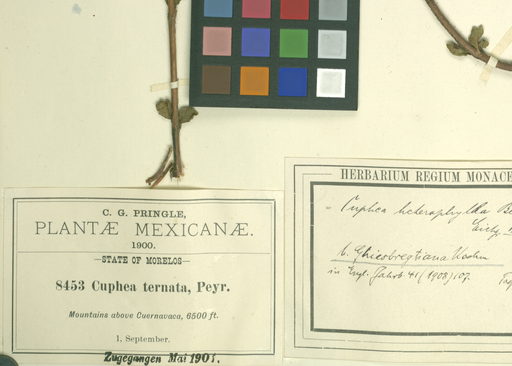 C. G. PRINGLE,
PLANTÆ MEXICANÆ.
1900.
—STATE OF MORELOS—
8453 Cuphea ternata, Peyr.
Mountains above Cuernavaca, 6500 ft.
1. September.
Zugegangen Mai 1901.
HERBARIUM REGIUM MONACE
Cuphea heterophylla
b. Ghiesbregtiana Koehne
in Engl. Jahrb. 41 (1908) 107.